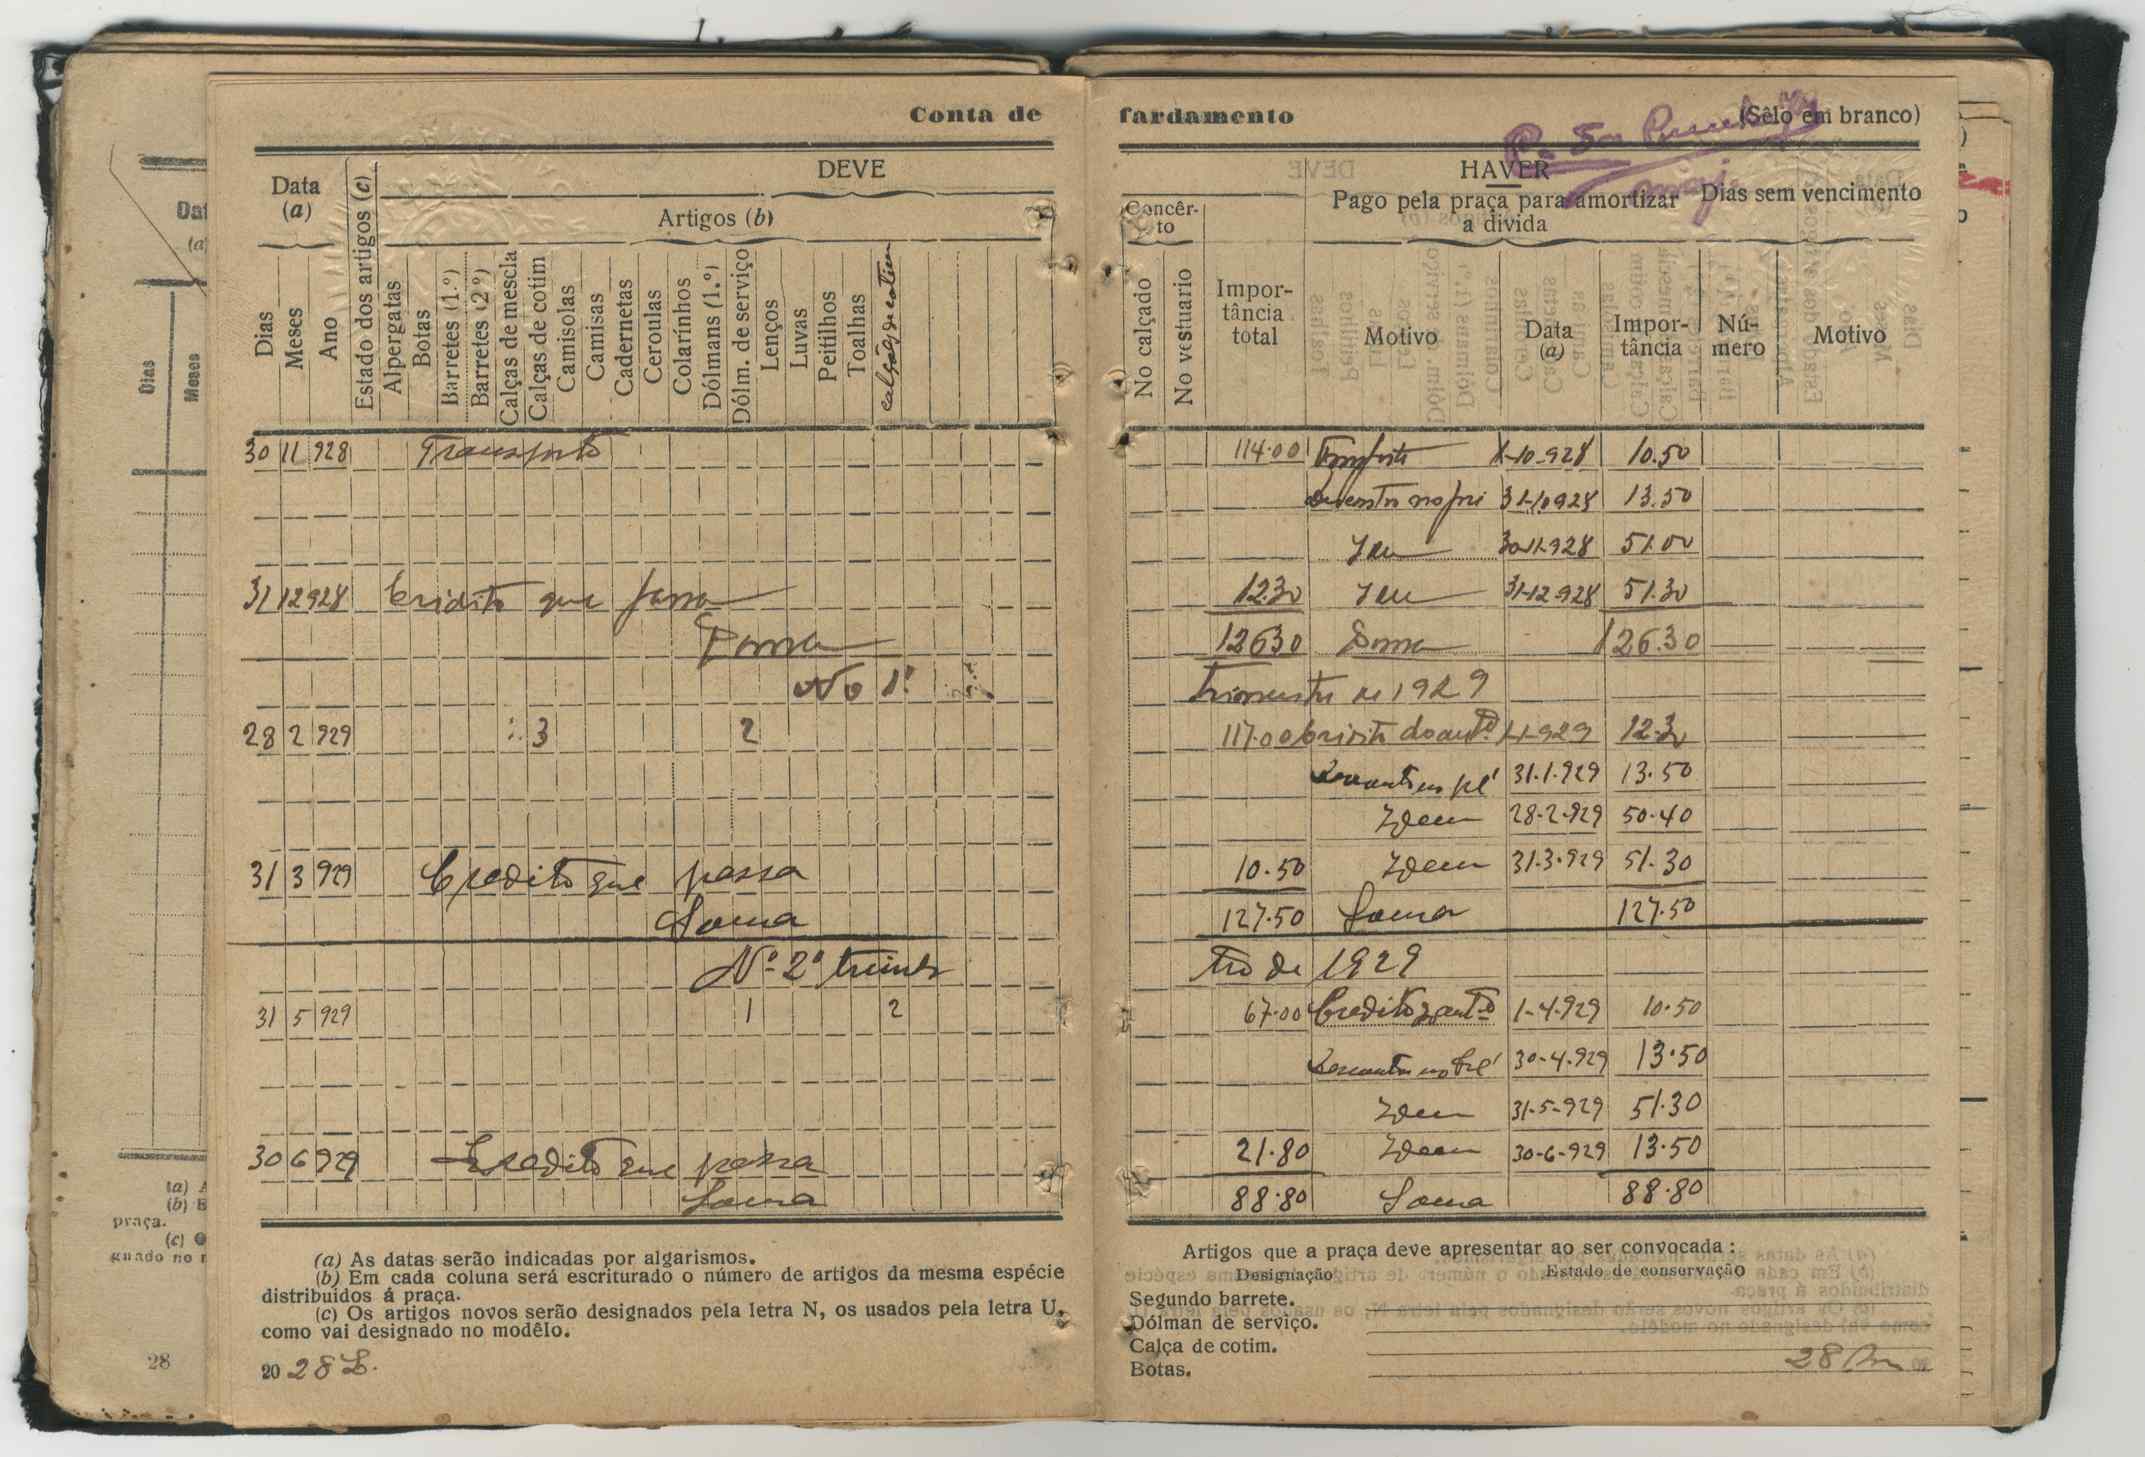 Conta de fardamento (Sêlo em branco)
DEVE
HAVER
Data (a)
Estado dos artigos (c)
Artigos (b)
Concêrto
Pago pela praça para amortizar a divida
Dias sem vencimento
Dias Meses Ano Alpergatas Botas Barretes (1.º) Barretes (2.º) Calças de mescla Calças de cotim Camisolas Camisas Cadernetas Ceroulas Colarínhos Dólmans (1.º) Dólm. de serviço Lenços Luvas Peitilhos Toalhas calções de cotim
No calçado No vestuario Importância total Motivo Data (a) Importância Número Motivo
30 11 928 Transporte 114.00 Transporte 1-10-928 10.50
31-10-928 13.50
30-11-928 51.00
31 12 928 Crédito que passa 12.30 31-12-928 51.30
Soma 126.30 Soma 126.30
No 1.º trimestre de 1929
28 2 929 3 2 117.00 Credito do antº 1-1-929 12.30
31.1.929 13.50
Idem 28-2-929 50.40
31 3 929 Credito que passa 10.50 Idem 31.3.929 51.30
Soma 127.50 Soma 127.50
Nº 2º trimestro de 1929
31 5 929 1 2 67.00 Credito do antº 1-4-929 10.50
30-4-929 13.50
Idem 31-5-929 51.30
30 6 929 Credito que passa 21.80 Idem 30-6-929 13.50
Soma 88.80 Soma 88.80
(a) As datas serão indicadas por algarismos.
(b) Em cada coluna será escriturado o número de artigos da mesma espécie
distribuidos á praça.
(c) Os artigos novos serão designados pela letra N, os usados pela letra U,
como vai designado no modêlo.
20 28
Artigos que a praça deve apresentar ao ser convocada :
Designação Estado de conservação
Segundo barrete.
Dólman de serviço.
Calça de cotim.
Botas.
28
Dias
Meses
praça.
28